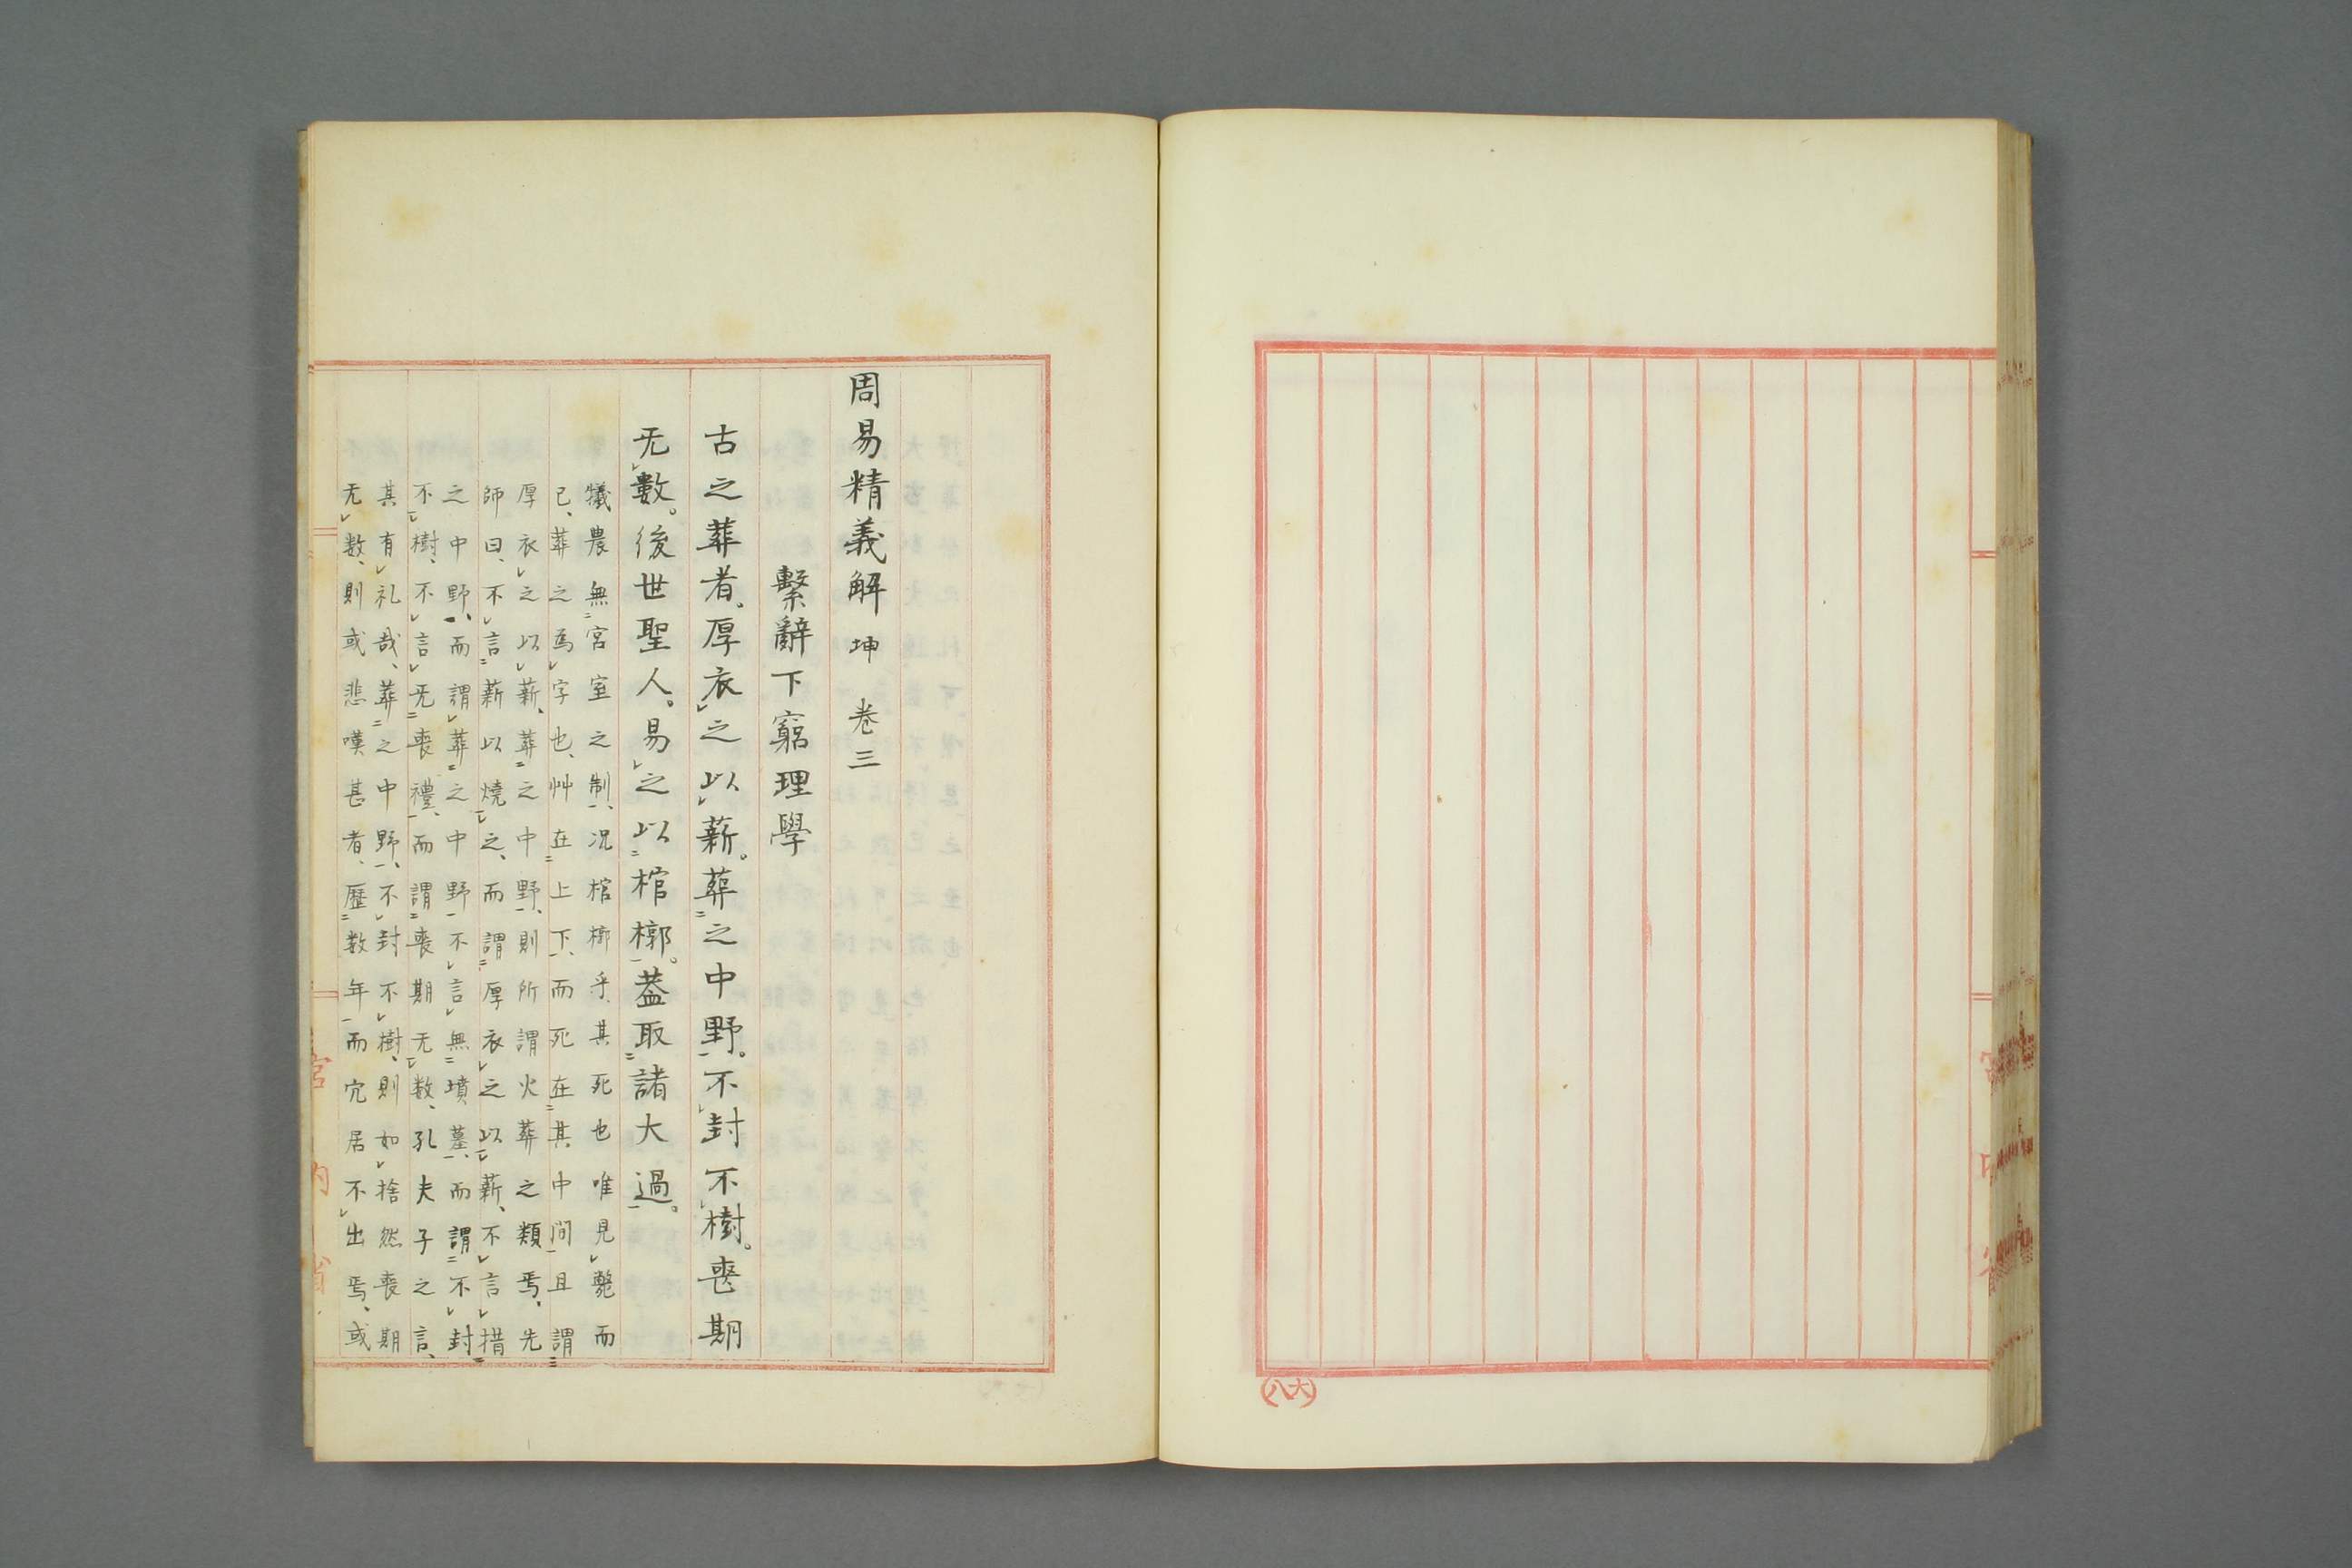 周易精義解 坤 卷三
繫辭下窮理學
古之葬者。厚衣之以薪。葬之中野。不封不樹。喪期
无數。後世聖人。易之以棺槨。葢取諸大過。
犧農無宮室之制、況棺槨乎、其死也唯見斃而
已、葬之為字也、艸在上下、而死在其中間、且謂
厚衣之以薪、葬之中野、則所謂火葬之類焉、先
師曰、不言薪以燒之、而謂厚衣之以薪、不言措
之中野、而謂葬之中野、不言無墳墓、而謂不封
不樹、不言无喪禮、而謂喪期无数、孔夫子之言、
其有礼哉、葬之中野、不封不樹、則如捨然喪期
无数、則或悲嘆甚者、歷数年而穴居不出焉、或
宮
内
省
(六八)